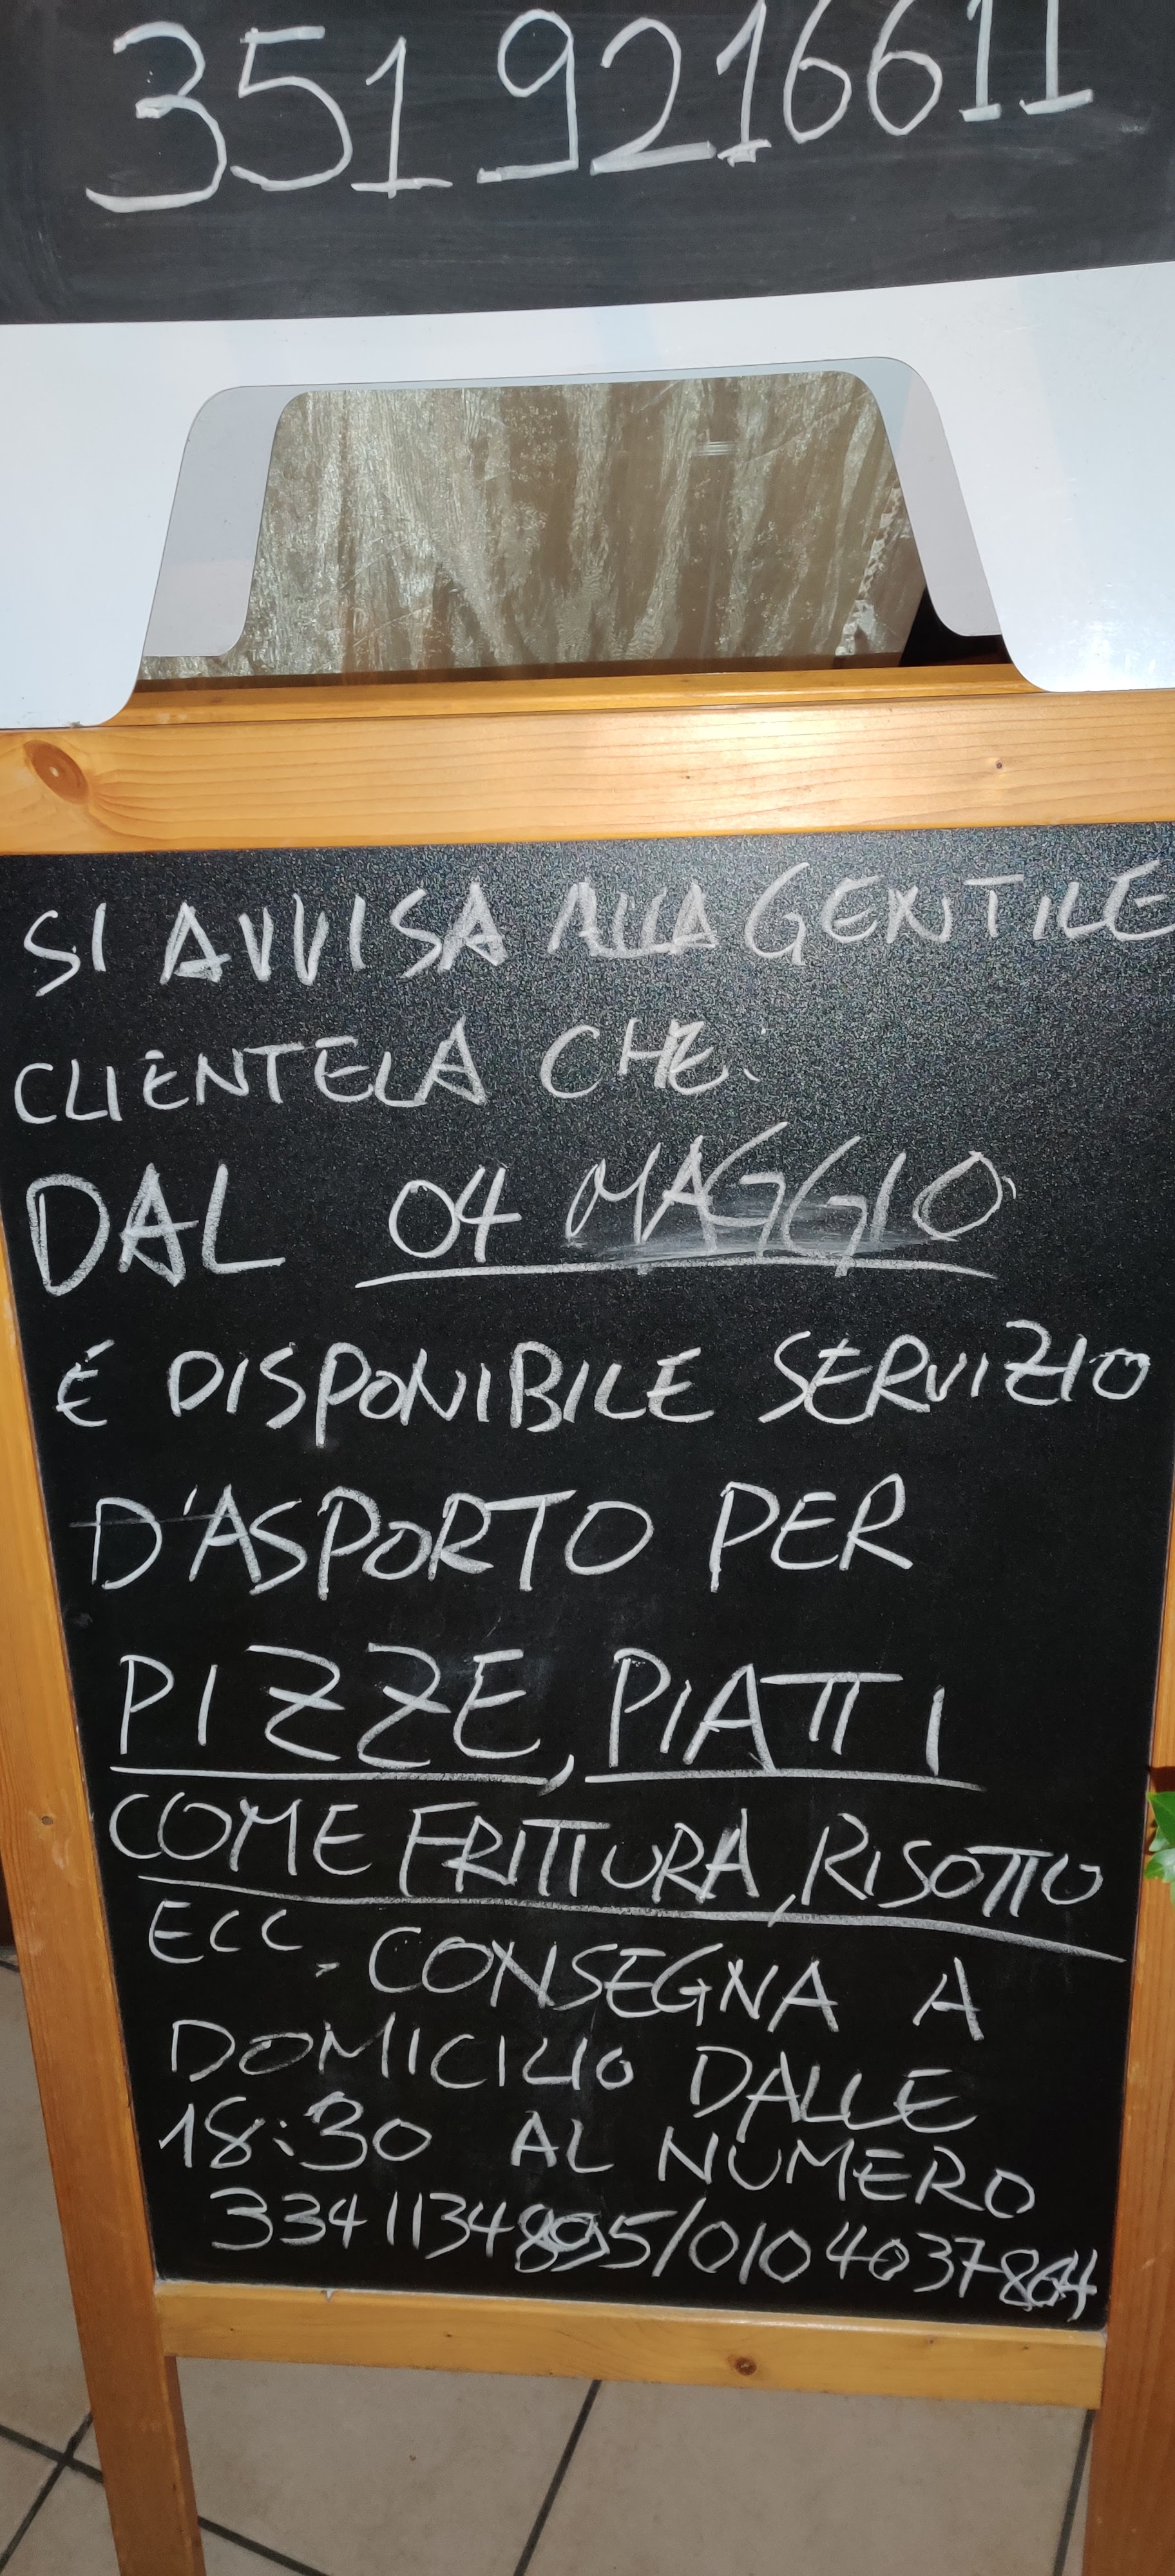 351 9216611
SI AVVISA ALLA GENTILE
CLIENTELA CHE.
DAL 04 MAGGIO
É DISPONIBILE SERVIZIO
D'ASPORTO PER
PIZZE, PIATTI
COME FRITTURA, RISOTTO
ECC. CONSEGNA A
DOMICILIO DALLE
18:30 AL NUMERO
3341134895/0104037864